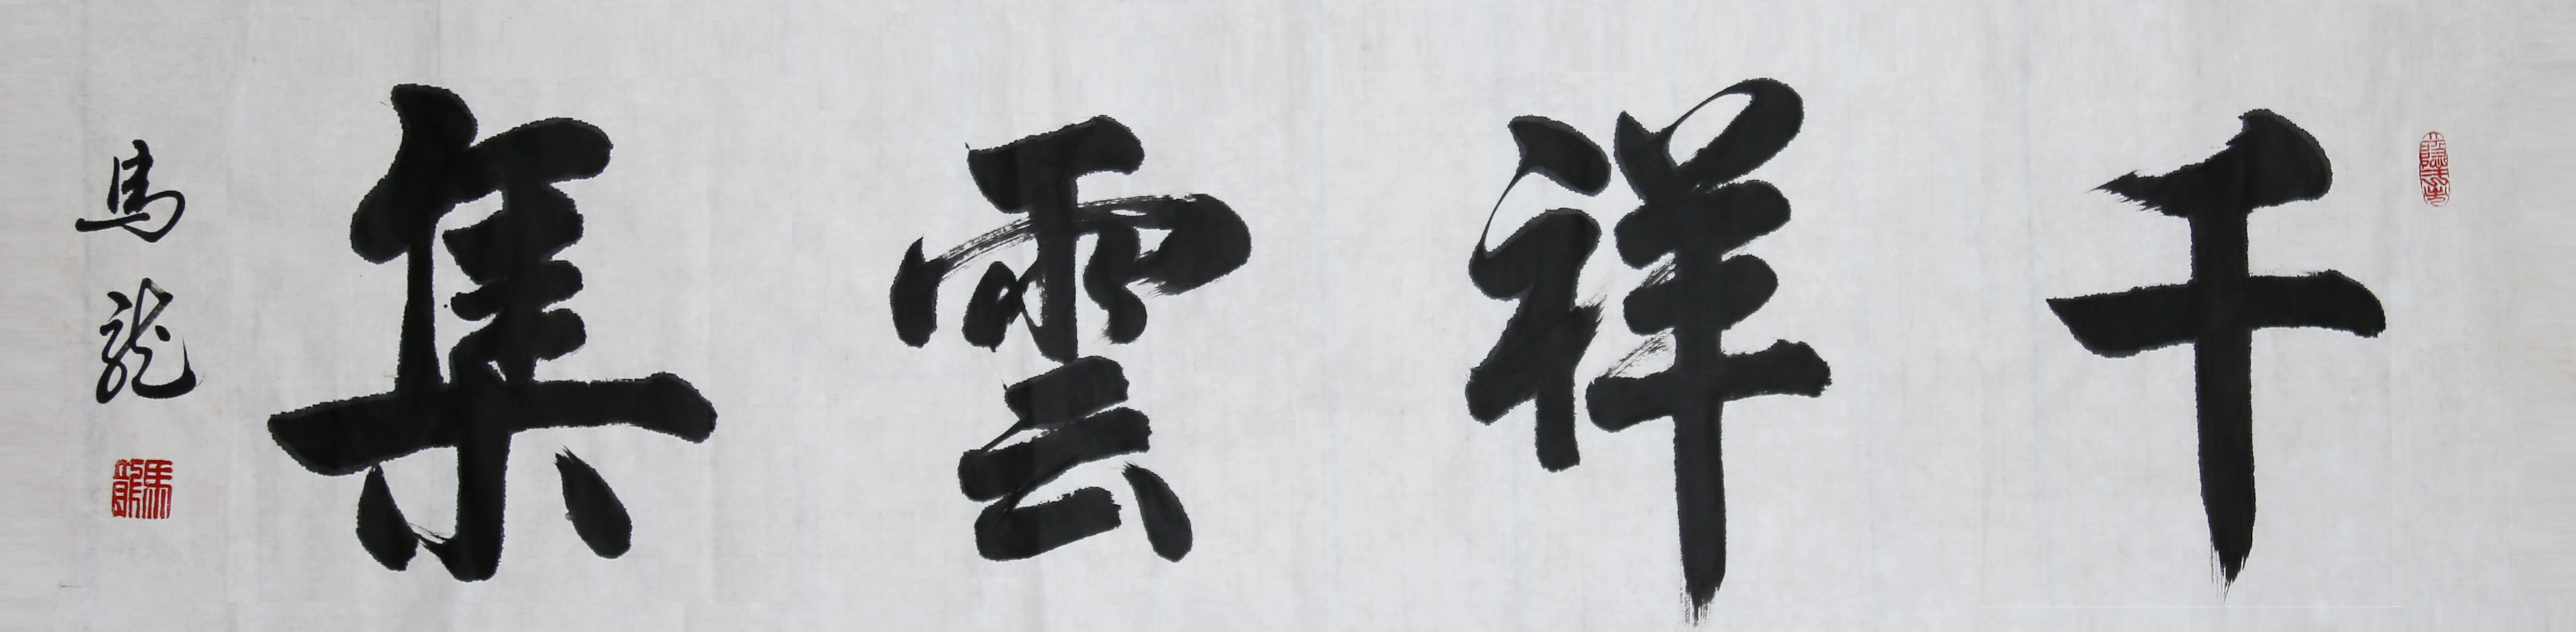 千祥雲集
馬龍
馬龍